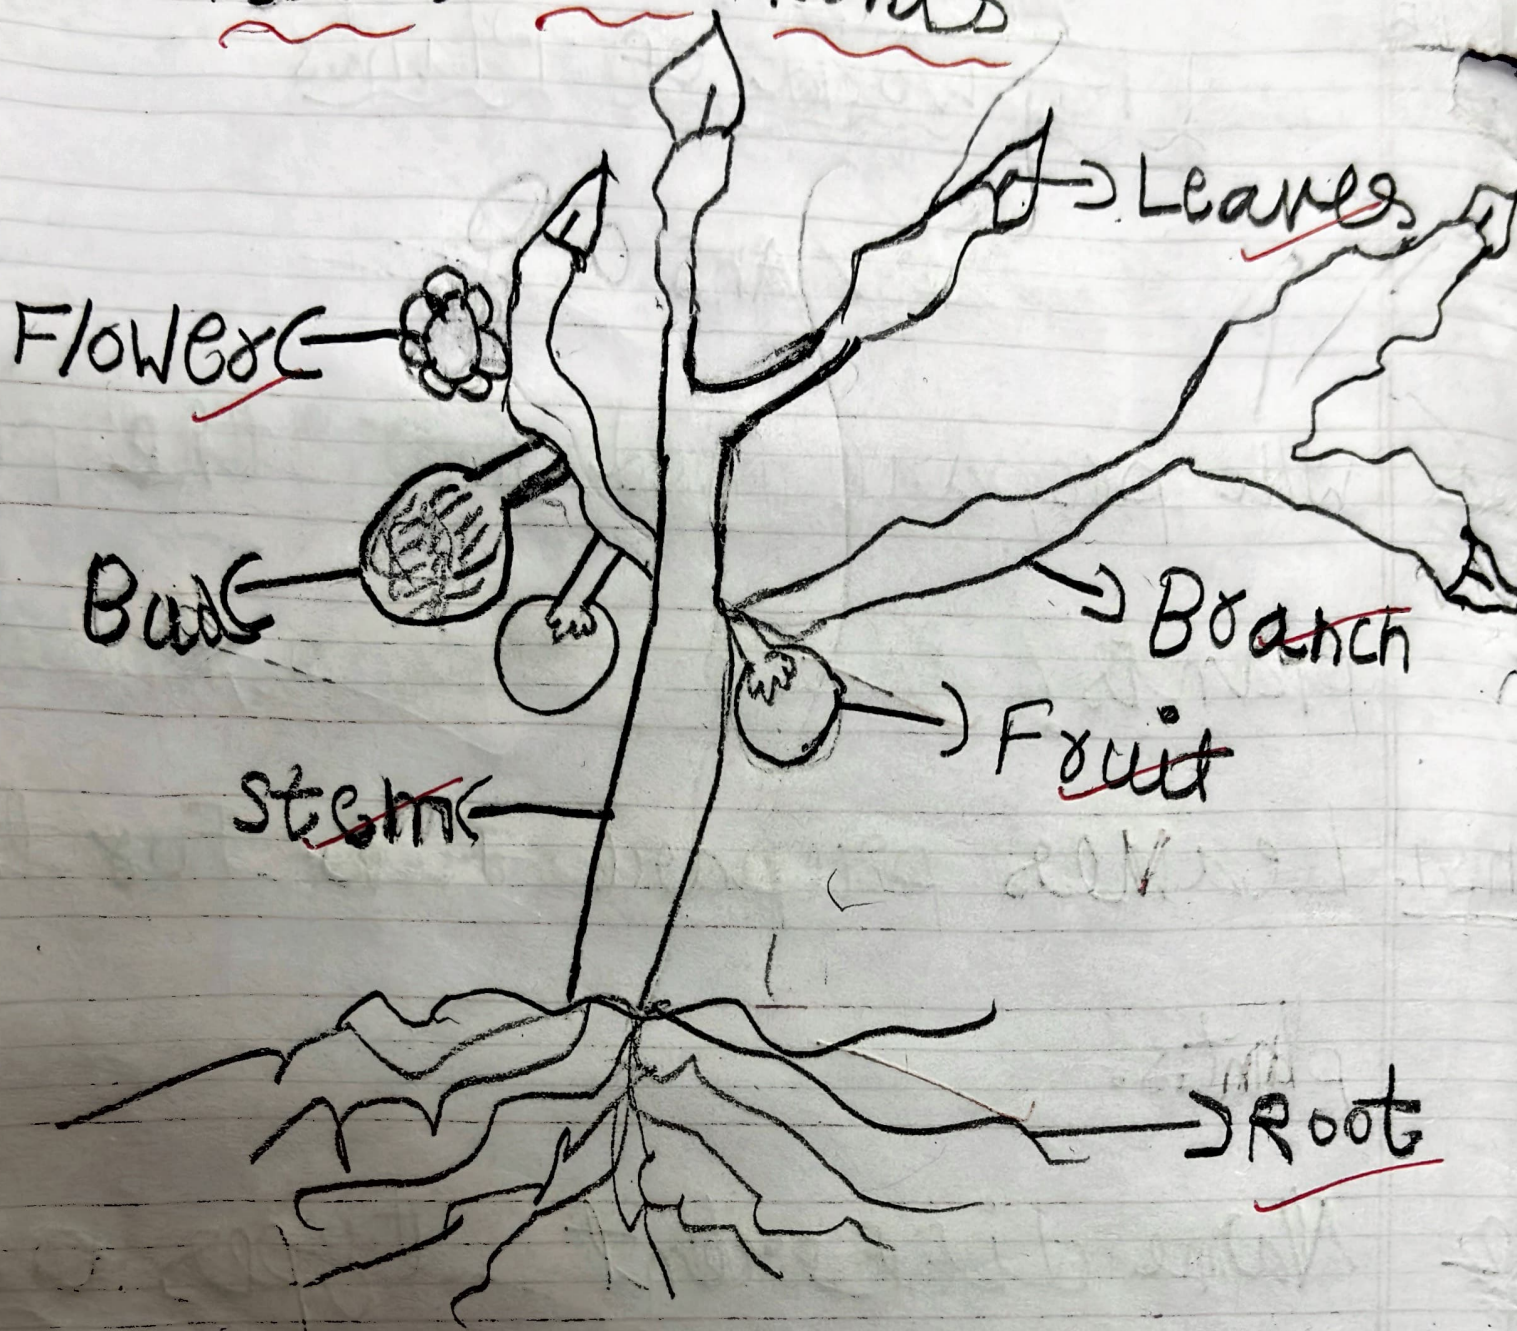 Leaves
Flower
Bud
Branch
Fruit
Stem
Root